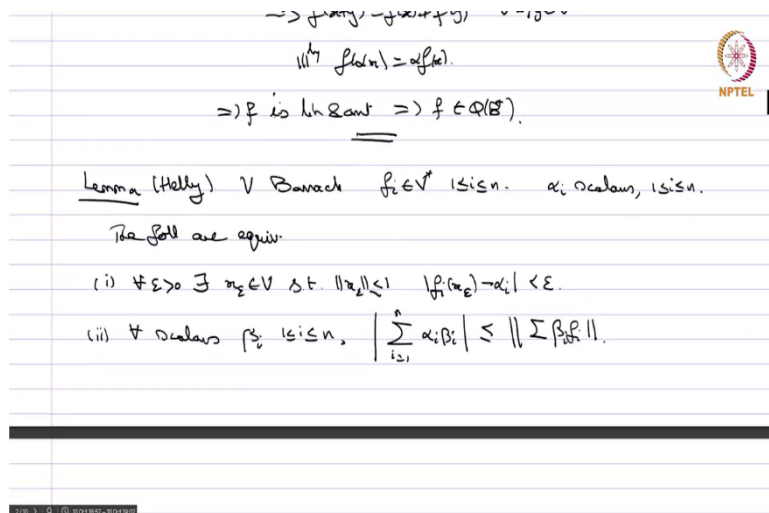 => f(x+y) = f(x)+f(y)
|||ly f(αx) = αf(x).
NPTEL
=> f is lin & cont => f ∈ φ(B*).
Lemma (Helly) V Banach fi ∈ V* 1≤i≤n. αi scalars, 1≤i≤n.
The foll are equiv.
(i) ∀ ε>0 ∃ xε ∈ V s.t. ||xε|| ≤ 1 |fi(xε) - αi| < ε.
(ii) ∀ scalars βi 1≤i≤n, |∑ i=1 n αiβi| ≤ ||∑ βifi||.